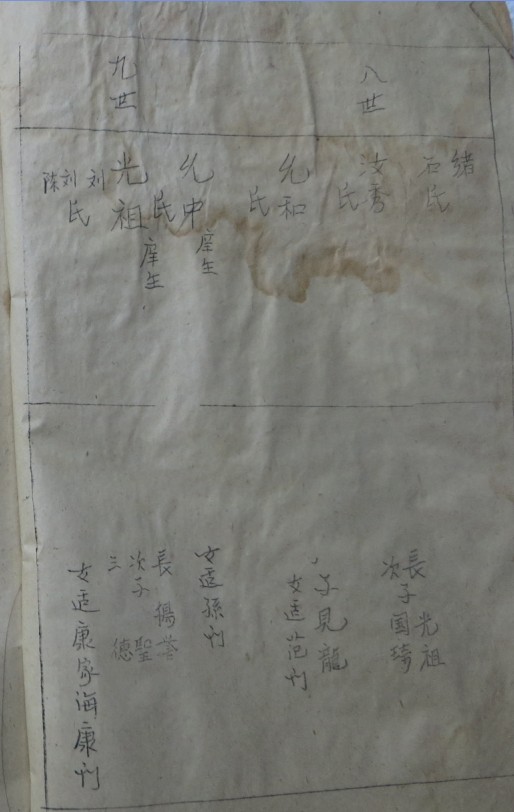 八世
緒
石氏
汝秀
氏
允和
氏
允中 庠生
氏
九世
光祖 庠生
刘
刘氏
陈
長 光祖
次子国琦
子見龍
女适范门
女适孫门
長
次子聖
三 德
女适康家海康门